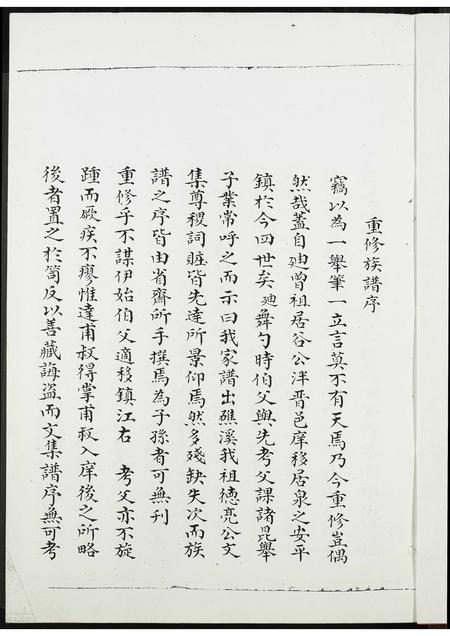 重修族譜序
竊以為一舉筆一立言莫不有天焉乃今重修豈偶
然哉蓋自廸曾祖居谷公泮晋邑庠移居泉之安平
鎮於今四世矣廸舞勺時伯父與先考父課諸毘舉
子業常呼之而示曰我家譜出礁溪我祖德亮公文
集尊稷詞賍皆先達所景仰焉然多殘缺失次而族
譜之序皆由省齋所手撰焉為子孫者可無刊
重修乎不謀伊始伯父適移鎮江右 考父亦不旋
踵而厥疾不廖惟達甫叔得掌甫叔入庠後之所略
後者置之於笥反以善藏誨盜而文集譜序無可考